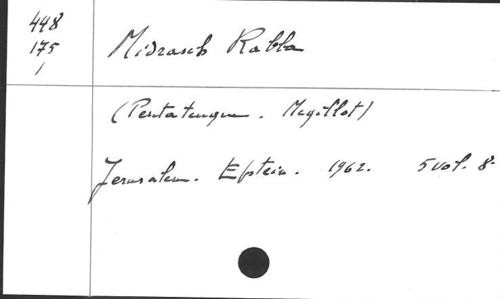 448
175
1
Midrasch Rabba
(Pentateuque. Megillot)
Jerusalem. Epstein. 1962. 5 vol. 8-